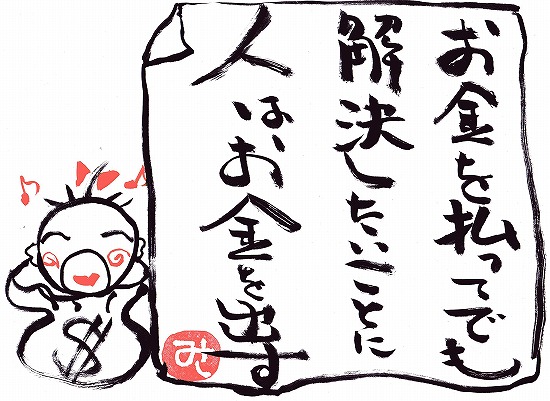 お金を払ってでも
解決したいことに
人はお金を出す
みし
$